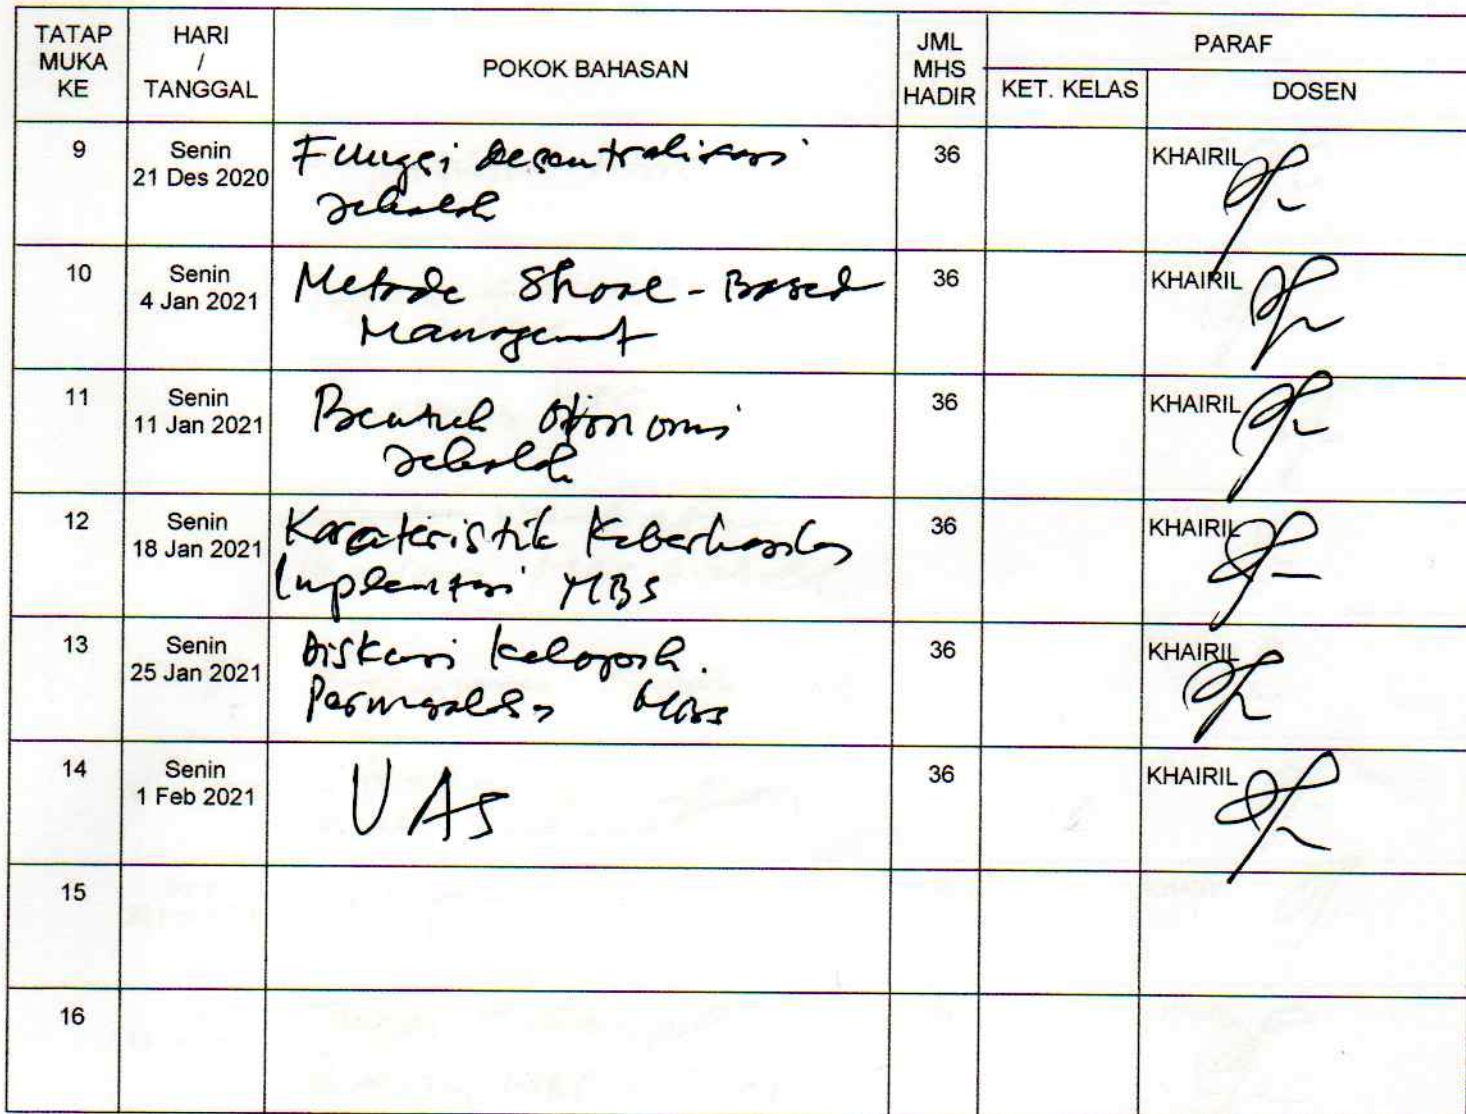 TATAP MUKA KE
HARI / TANGGAL
POKOK BAHASAN
JML MHS HADIR
PARAF
KET. KELAS
DOSEN
9
Senin
21 Des 2020
Fungsi desentralisasi
sekolah
36
KHAIRIL
10
Senin
4 Jan 2021
Metode Shool-Based
Management
36
KHAIRIL
11
Senin
11 Jan 2021
Bentuk otonomi
sekolah
36
KHAIRIL
12
Senin
18 Jan 2021
Karateristik Keberhasilan
Implentasi MBS
36
KHAIRIL
13
Senin
25 Jan 2021
Diskusi kelompok.
Permasalahan MBS
36
KHAIRIL
14
Senin
1 Feb 2021
UAS
36
KHAIRIL
15
16